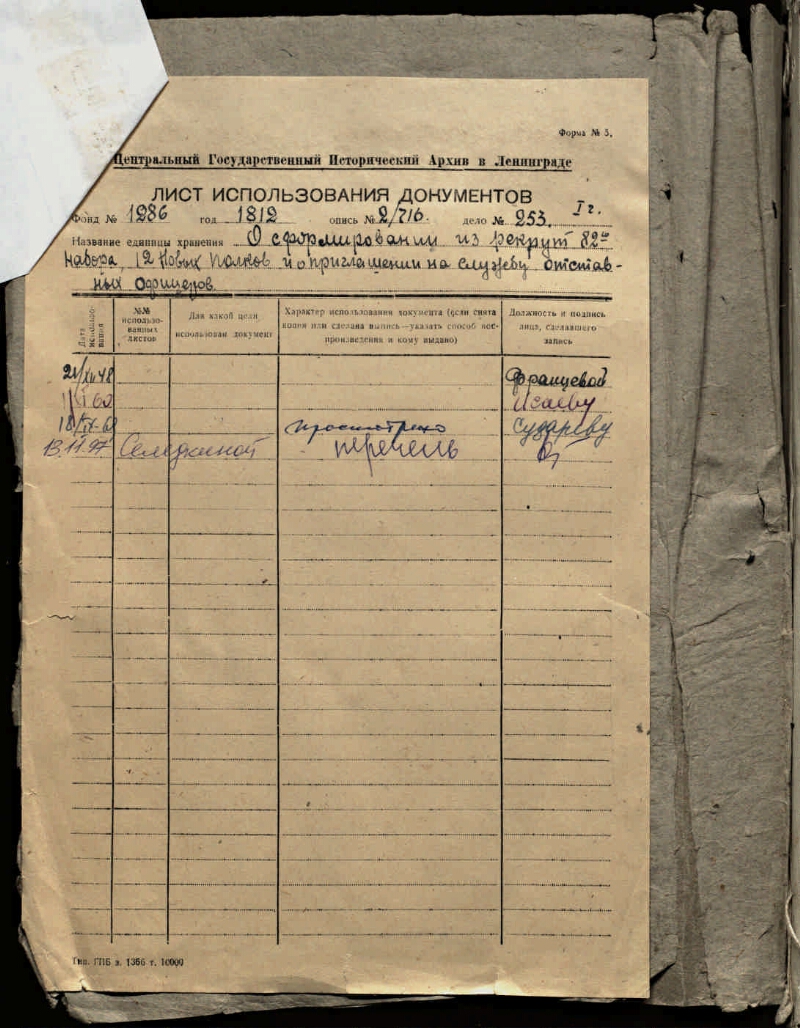 Форма № 5.
Центральный Государственный Исторический Архив в Ленинграде
ЛИСТ ИСПОЛЬЗОВАНИЯ ДОКУМЕНТОВ
Фонд № 1286 год 1812 опись № 2/716. дело № 253. I г.
Название единицы хранения О сформировании из рекрут 82го
Набора, 12 Новых Полков и о приглашении на службу отстав-
ных Офицеров
Дата использования
№№ использо-
ванных
листов
Для какой цели
использован документ
Характер использования документа (если снята
копия или сделана выпись—указать способ вос-
произведения и кому выдано)
Должность и подпись
лица, сделавшего
запись
21/XII 48 Францевой
60 Исаеву
18/IX-6 просмотрено Сухареву
13.11.97 Селедкиной перечень
Тип. ГПБ з. 1366 т. 10000